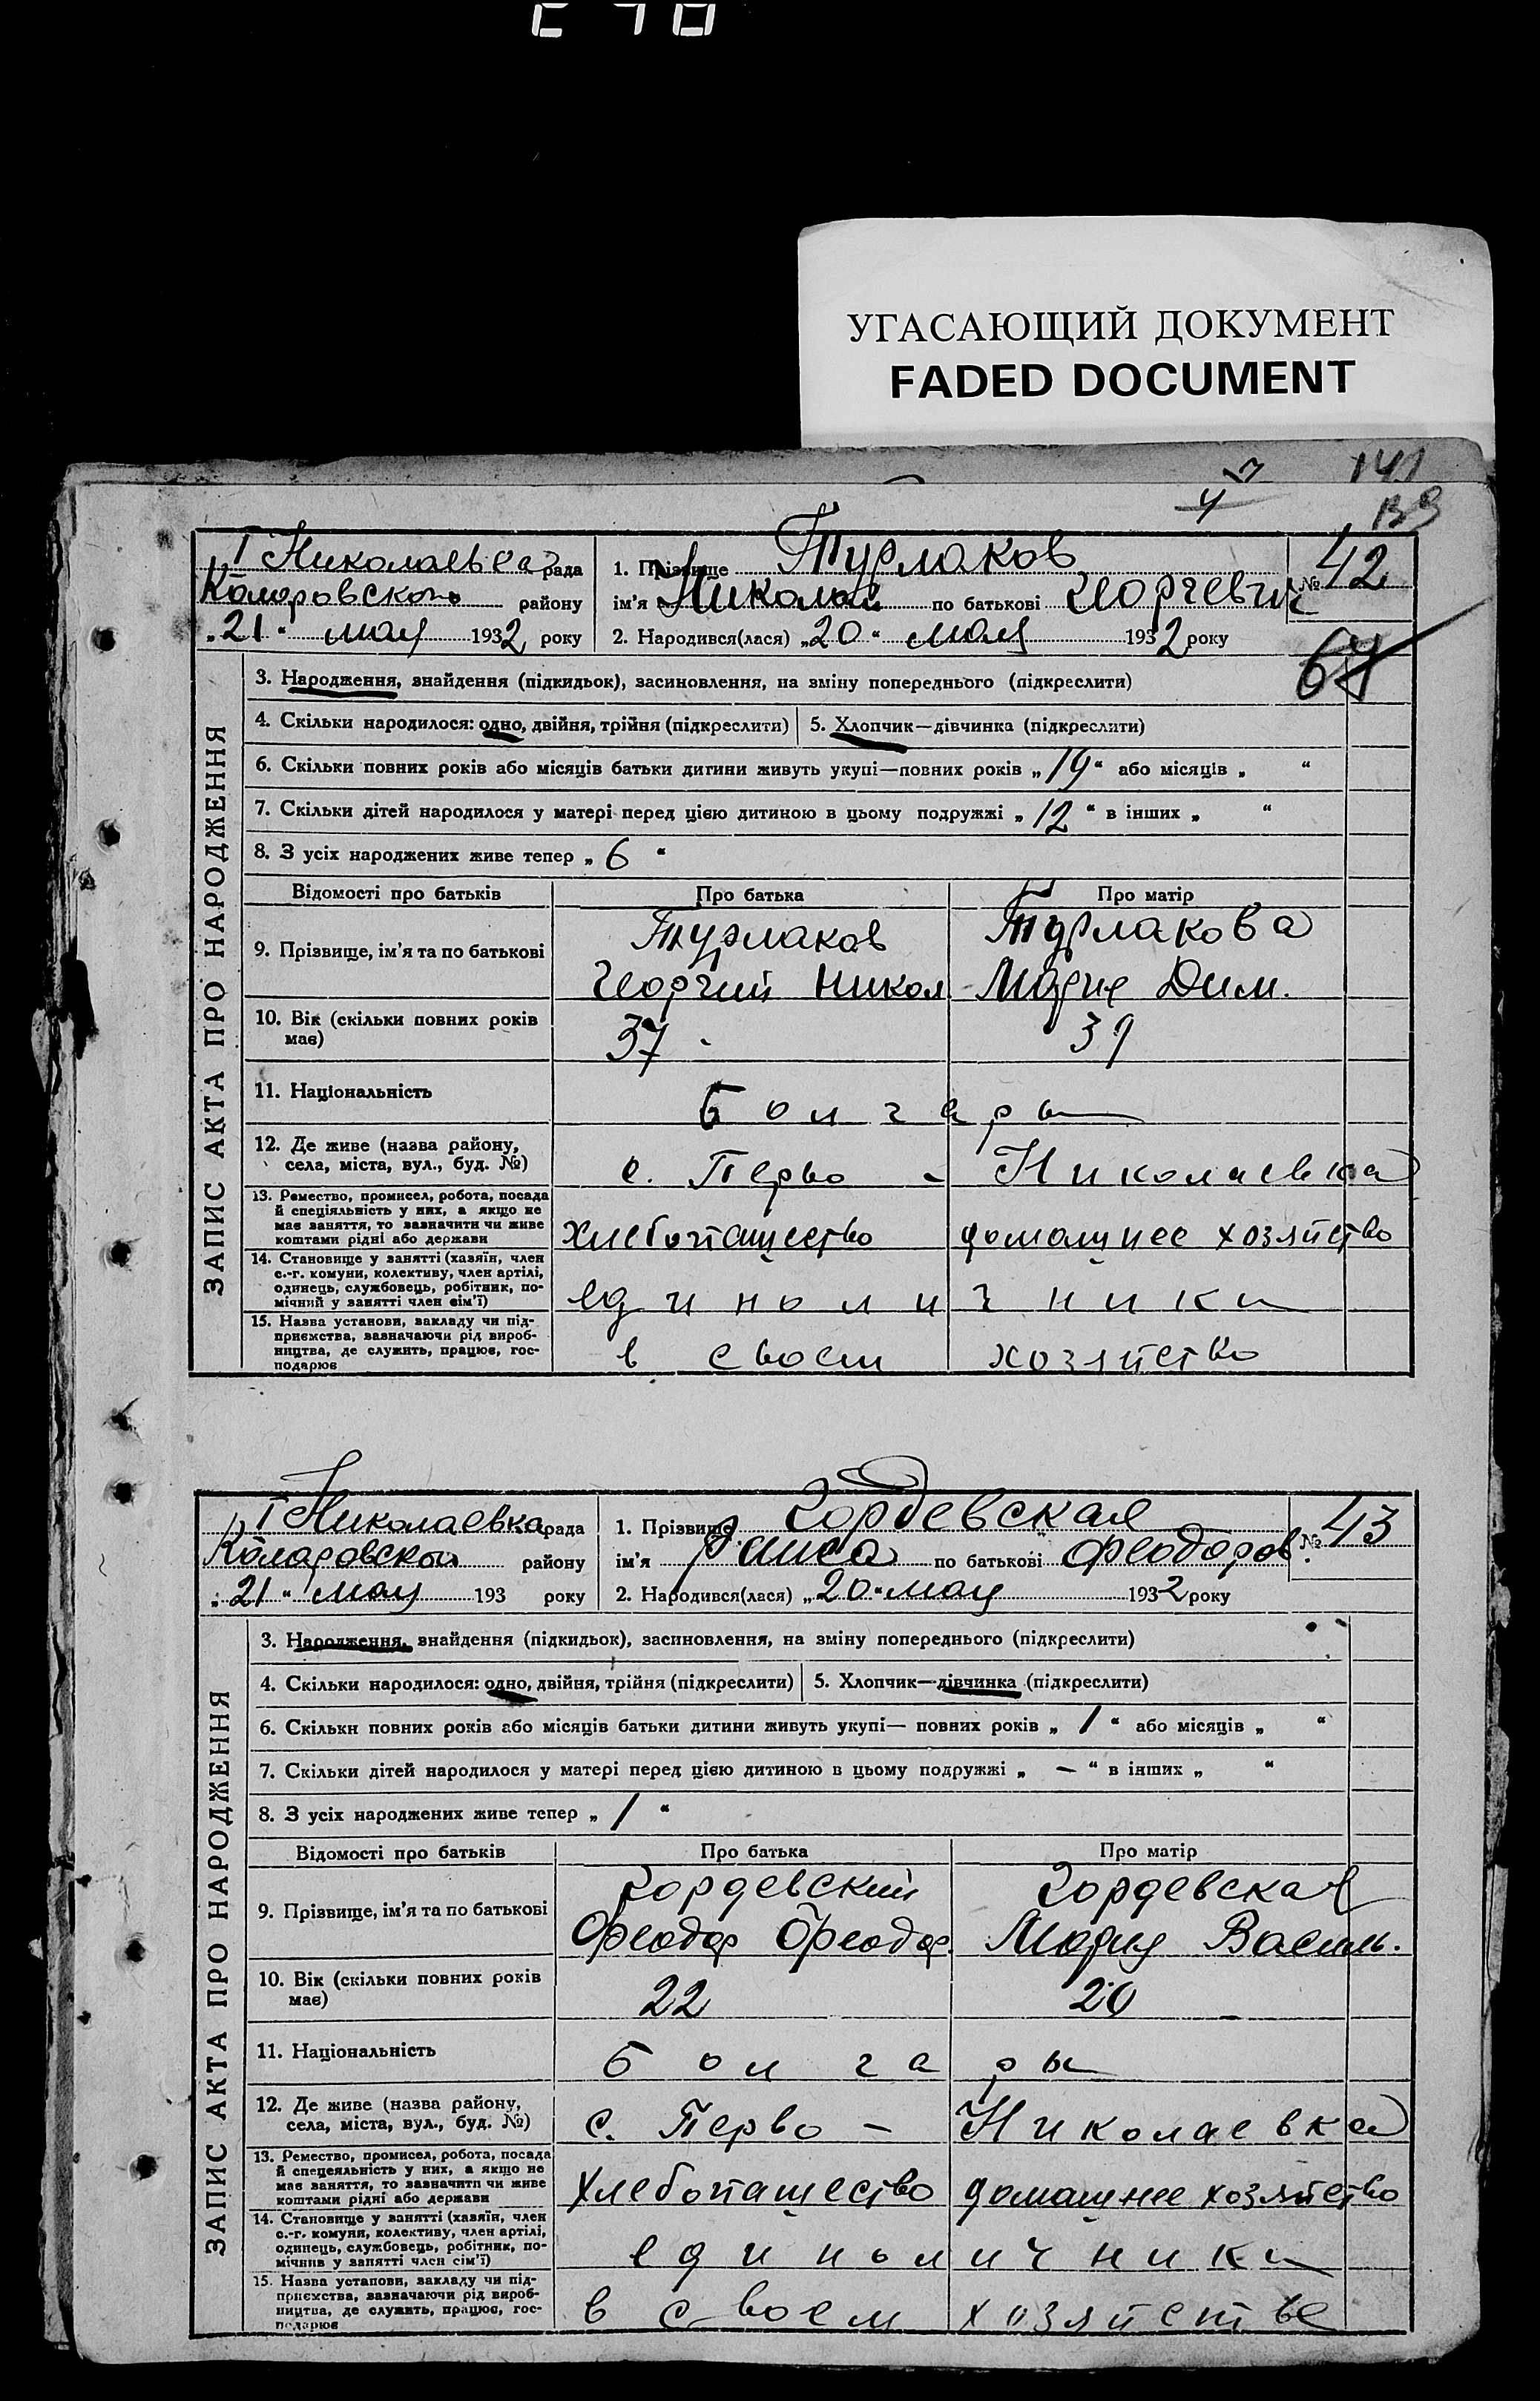 УГАСАЮЩИЙ ДОКУМЕНТ
FADED DOCUMENT
141
I Николаевка рада
Коларовского району
„21“ мая 1932 року
1. Прізвище Турлаков
ім'я Николай по батькові Георгевич
2. Народився(лася) „20“ мая 1932 року
№ 42
67
ЗАПИС АКТА ПРО НАРОДЖЕННЯ
3. Народження, знайдення (підкидьок), засиновлення, на зміну попереднього (підкреслити)
4. Скільки народилося: одно, двійня, трійня (підкреслити) 5. Хлопчик—дівчинка (підкреслити)
6. Скільки повних років або місяців батьки дитини живуть укупі—повних років „19“ або місяців „ “
7. Скільки дітей народилося у матері перед цією дитиною в цьому подружжі „12“ в інших „ “
8. З усіх народжених живе тепер „6“
Відомості про батьків Про батька Про матір
9. Прізвище, ім'я та по батькові
Турлаков Турлакова
Георгий Никол Мария Дим.
10. Вік (скільки повних років
має)
37 39
11. Національність Болгары
12. Де живе (назва району,
села, міста, вул., буд. №)
с. Перво - Николаевка
13. Ремество, промисел, робота, посада
й спеціяльність у них, а якщо не
має заняття, то зазначити чи живе
коштами рідні або держави
хлебопашество домашнее хозяйство
14. Становище у занятті (хазяїн, член
с.-г. комуни, колективу, член артілі,
одинець, службовець, робітник, по-
мічний у занятті член сім'ї)
единоличники
15. Назва установи, закладу чи під-
приємства, зазначаючи рід вироб-
ництва, де служить, працює, гос-
подарює
в своем хозяйство
I Николаевка рада
Коларовской району
„21“ мая 193 року
1. Прізвище Гордевская
ім'я Раиса по батькові Феодоров.
2. Народився(лася) „20“ мая 1932 року
№ 43
ЗАПИС АКТА ПРО НАРОДЖЕННЯ
3. Народження, знайдення (підкидьок), засиновлення, на зміну попереднього (підкреслити)
4. Скільки народилося: одно, двійня, трійня (підкреслити) 5. Хлопчик—дівчинка (підкреслити)
6. Скільки повних років або місяців батьки дитини живуть укупі— повних років „1“ або місяців „ “
7. Скільки дітей народилося у матері перед цією дитиною в цьому подружжі „ — “ в інших „ “
8. З усіх народжених живе тепер „1“
Відомості про батьків Про батька Про матір
9. Прізвище, ім'я та по батькові
Гордевский Гордевская
Феодор Феодор. Мария Василь.
10. Вік (скільки повних років
має)
22 20
11. Національність Болгары
12. Де живе (назва району,
села, міста, вул., буд. №)
с. Перво - Николаевка
13. Ремество, промисел, робота, посада
й спецеяльність у них, а якщо не
має заняття, то зазначити чи живе
коштами рідні або держави
хлебопашество домашнее хозяйство
14. Становище у занятті (хазяїн, член
с.-г. комуни, колективу, член артілі,
одинець, службовець, робітник, по-
мічнив у занятті член сім'ї)
единоличники
15. Назва установи, закладу чи під-
приємства, зазначаючи рід вироб-
ництва, де служить, працює, гос-
подарює
в своем хозяйстве